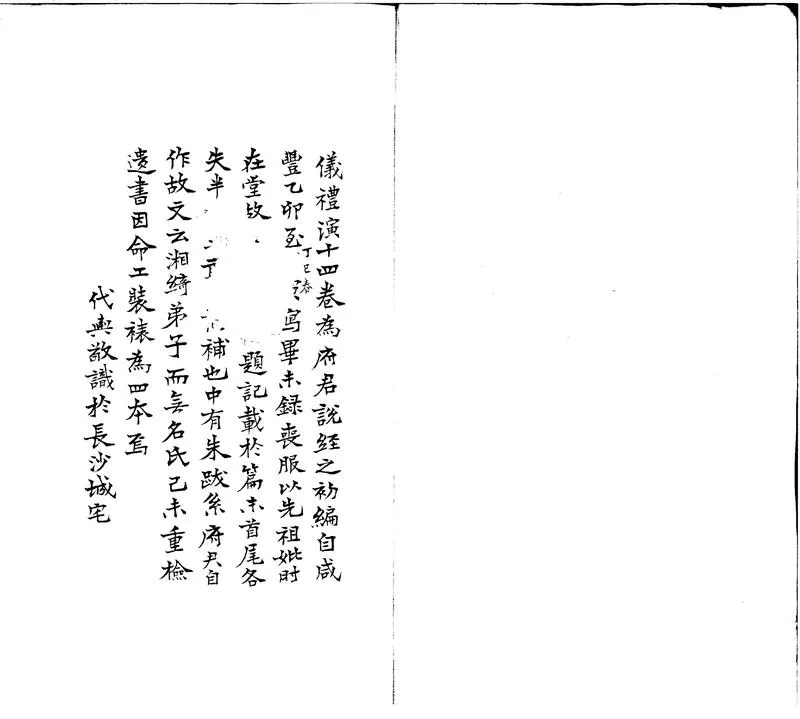 儀禮演十四卷為府君說經之初編自咸
豐乙卯至丁巳春寫畢未錄喪服以先祖妣時
在堂故題記載於篇末首尾各
失半補也中有朱跋系府君自
作故文云湘綺弟子而無名氏己未重檢
遺書因命工裝裱為四本焉
代輿敬識於長沙城宅